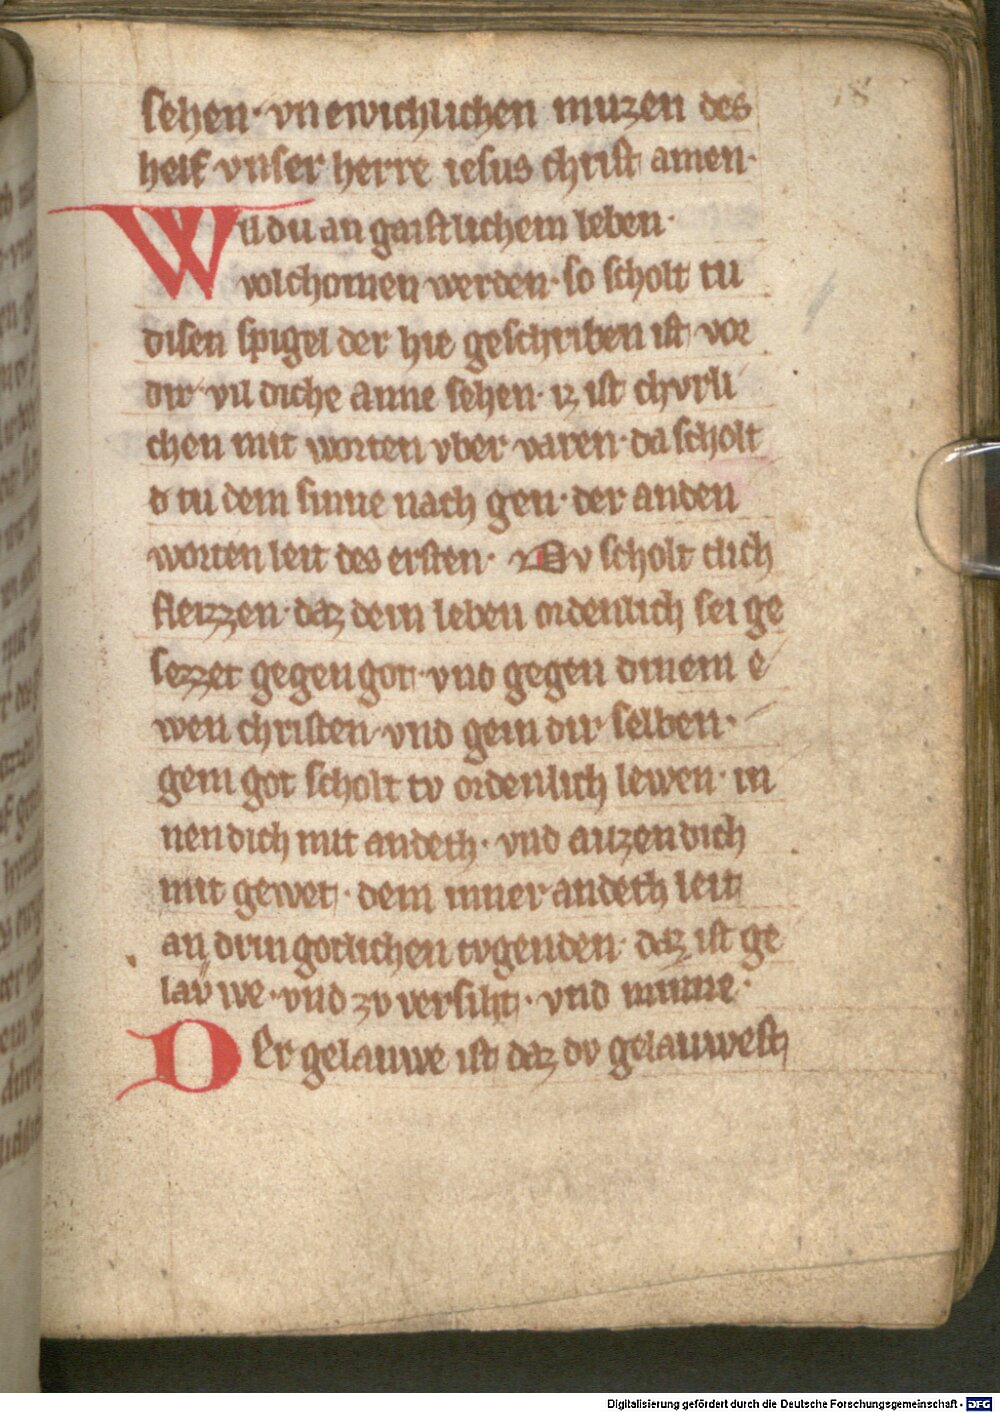 18
sehen· vn ewichlichen muzen des
helf vnser herre iesus christ amen·
Wil du an gaistlichem leben·
volchomen werden· so scholt tu
disen spigel der hie geschriben ist· vor
dir· vil diche anne sehen· iz ist chvrli
chen mit worten vber varen· da scholt
tu dem sinne nach gen· der anden
worten leit des ersten· Dv scholt dich
fleizzen· daz dein leben ordenlich sei ge
sezzet gegen got· vnd gegen dinem e
wen christen· vnd gein dir selben·
gein got scholt tv ordenlich lewen· in
nen dich mit andech· vnd auzen dich
mit gewet· dem inner andech leit
an drin gotlichen tvgenden· daz ist ge
lav̈we· vnd zv versiht· vnd minne·
Der gelauwe ist daz dv gelauwest
Digitalisierung gefördert durch die Deutsche Forschungsgemeinschaft - DFG